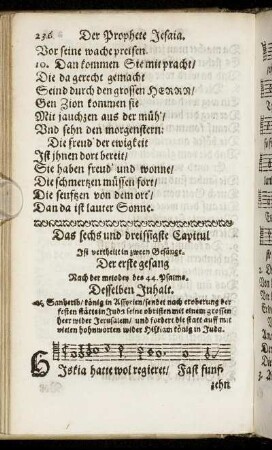 236 Der Prophete Jesaia.
Vor seine wache preisen.
10. Dan kommen Sie mit pracht/
Die da gerecht gemacht
Seind durch den grossen HERRN/
Gen Zion kommen sie
Mit jauchzen aus der müh'/
Und sehn den morgenstern:
Die freud' der ewigkeit
Ist ihnen dort bereit/
Sie haben freud' und wonne/
Die schmertzen müssen fort/
Die seufftzen von dem ort/
Dan da ist lauter Sonne.
Das sechs und dreissigste Capitul
Ist vertheilt in zween Gesänge.
Der erste gesang
Nach der melodey des 44. Psalms.
Desselben Inhalt.
Sanherib/ könig in Assyrien/ sendet nach eroberung der
festen stätte in Juda seine obristen mit einem grossen
heer wider Jerusalem/ und fordert die statt auff mit
vielen hohnworten wider Hiskiam könig in Juda.
Hiskia hatte wol regieret/ Fast funf-
zehn